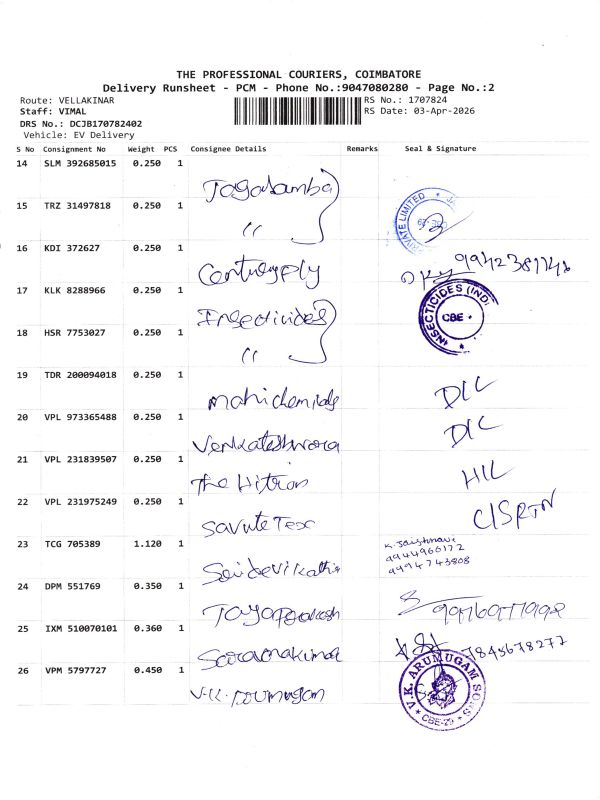 THE PROFESSIONAL COURIERS, COIMBATORE
Delivery Runsheet - PCM - Phone No.:9047080280 - Page No.:2
Route: VELLAKINAR RS No.: 1707824
Staff: VIMAL RS Date: 03-Apr-2026
DRS No.: DCJB170782402
Vehicle: EV Delivery
S No Consignment No Weight PCS Consignee Details Remarks Seal & Signature
14 SLM 392685015 0.250 1 Jagadamba
15 TRZ 31497818 0.250 1 " PRIVATE LIMITED
16 KDI 372627 0.250 1 9942381146
17 KLK 8288966 0.250 1 Insecticides INSECTICIDES (INDI CBE
18 HSR 7753027 0.250 1 "
19 TDR 200094018 0.250 1 D/L
20 VPL 973365488 0.250 1 Venkateshwara D/L
21 VPL 231839507 0.250 1 The H/L
22 VPL 231975249 0.250 1 Savute Tex C/S RTN
23 TCG 705389 1.120 1 9944966172
9994743808
24 DPM 551769 0.350 1
25 IXM 510070101 0.360 1 7845678277
26 VPM 5797727 0.450 1 V.K. V.K. ARUMUGAM SONS CBE-29